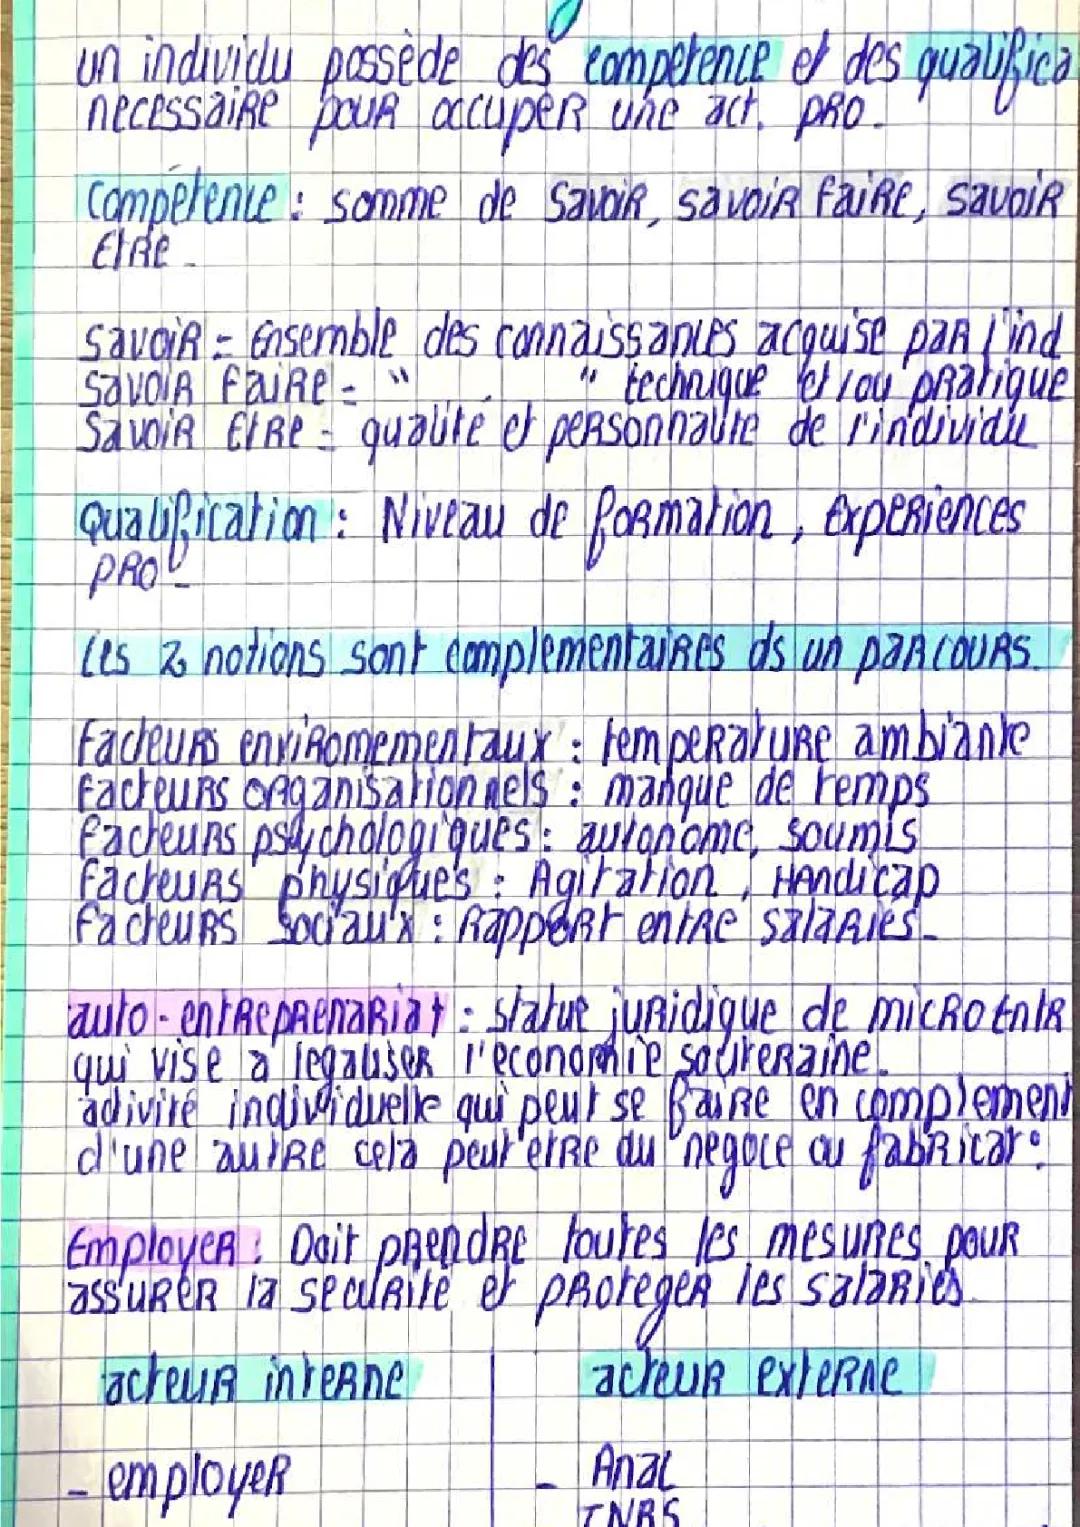 un individu possède des compétence et des qualifica
necessaire pour occuper une act. pro.
Compétence : somme de savoir, savoir faire, savoir
etre.
savoir = Ensemble des connaissances acquise par l'ind
savoir faire = " " technique et/ou pratique
Savoir Etre = qualité et personnalité de l'individu
Qualification : Niveau de formation, experiences
pro
les 2 notions sont complementaires ds un parcours.
facteurs enviromementaux : temperature ambiante
facteurs organisationnels : manque de temps
facteurs psychologiques : autonome, soumis
facteurs physiques : Agitation, Handicap
facteurs sociaux : Rapport entre salariés.
auto-entreprenariat : statue juridique de micro entr
qui vise a legaliser l'economie souteraine.
activité individuelle qui peut se faire en complement
d'une autre cela peut etre du negoce ou fabricat°
Employer : Doit prendre toutes les mesures pour
assurer la securité et proteger les salariés.
acteur interne acteur externe
- employer - Anac
INRS